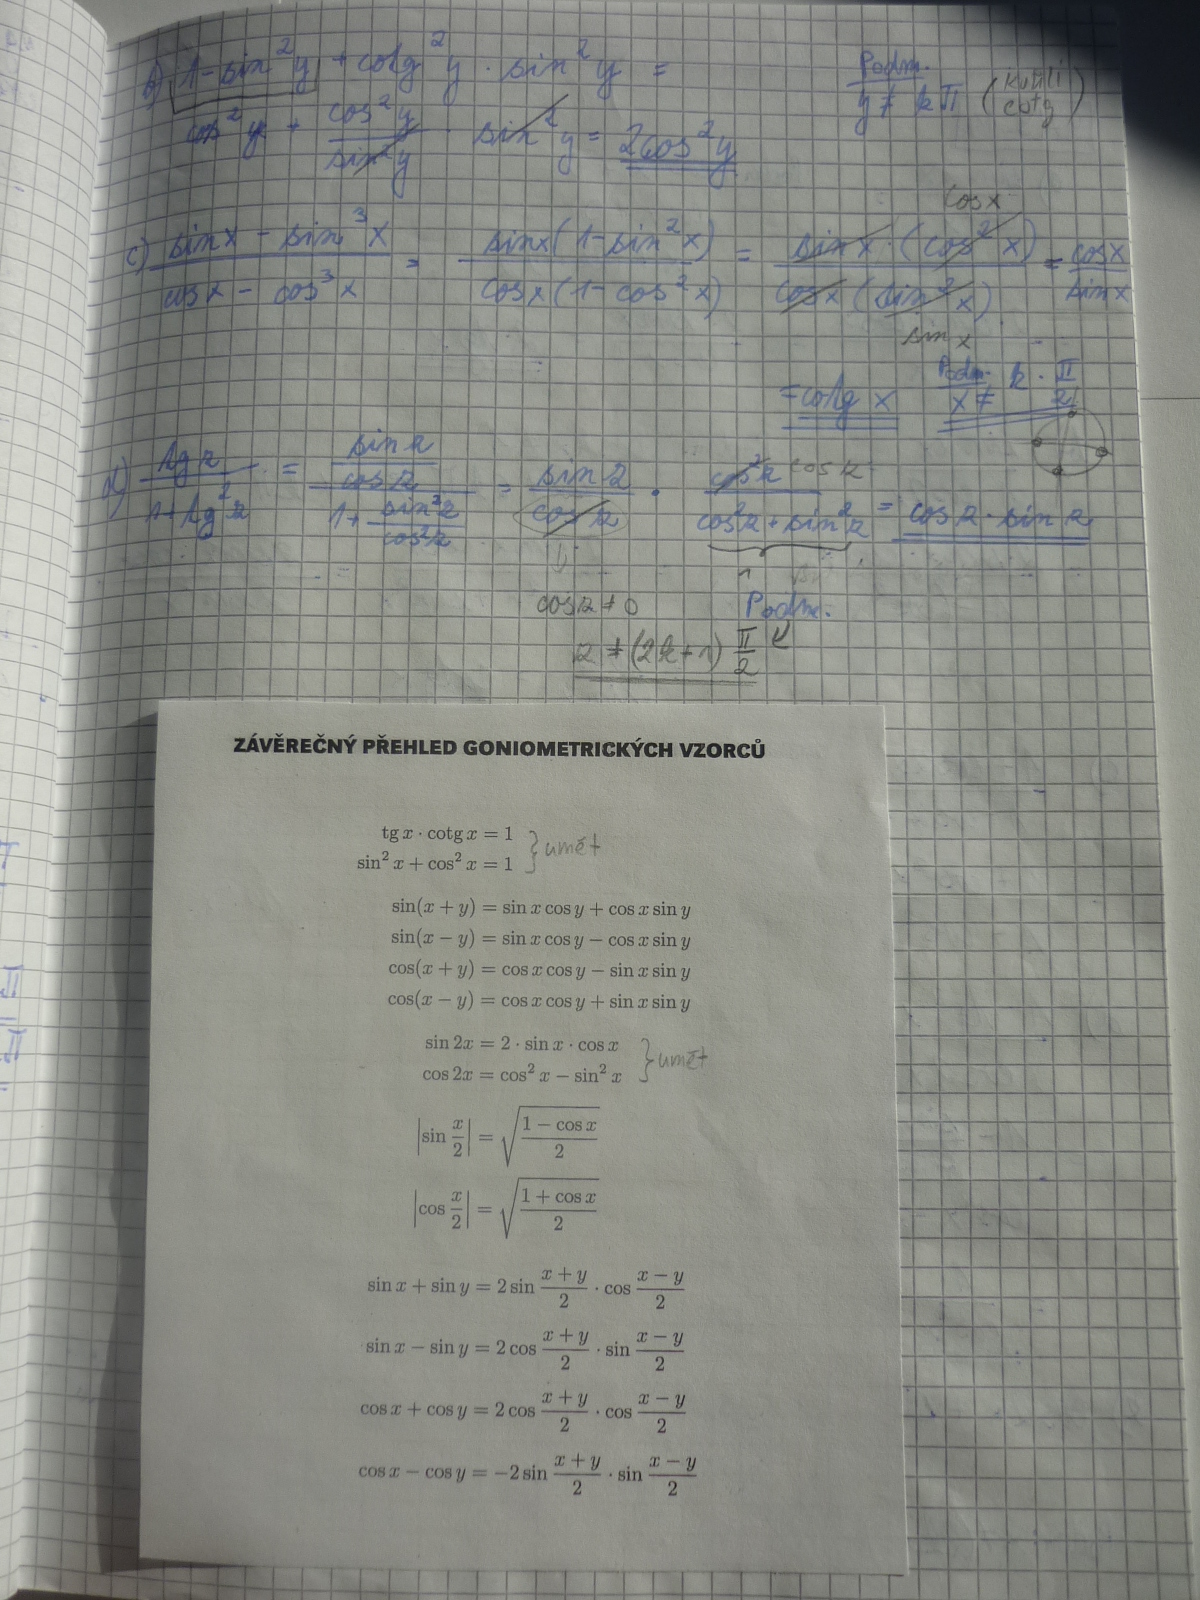 b) 1 - sin²y + cotg²y · sin²y =
Podm.
y ≠ kπ (kvůli cotg)
cos²y + cos²y/sin²y · sin²y = 2cos²y
c) (sin x - sin³x)/(cos x - cos³x) = (sin x (1 - sin²x))/(cos x (1 - cos²x)) = (sin x · (cos²x))/(cos x (sin²x)) = cos x/sin x
cos x
sin x
= cotg x
Podm. x ≠ k · π/2
d) tg z/(1 + tg²z) = (sin z/cos z)/(1 + sin²z/cos²z) = sin z/cos z · cos²z/(cos²z + sin²z) = cos z · sin z
cos z
1
cos z ≠ 0
Podm.
z ≠ (2k+1) π/2
ZÁVĚREČNÝ PŘEHLED GONIOMETRICKÝCH VZORCŮ
tg x · cotg x = 1
sin² x + cos² x = 1
} umět
sin(x + y) = sin x cos y + cos x sin y
sin(x − y) = sin x cos y − cos x sin y
cos(x + y) = cos x cos y − sin x sin y
cos(x − y) = cos x cos y + sin x sin y
sin 2x = 2 · sin x · cos x
cos 2x = cos² x − sin² x
} umět
|sin x/2| = √((1 − cos x)/2)
|cos x/2| = √((1 + cos x)/2)
sin x + sin y = 2 sin (x + y)/2 · cos (x − y)/2
sin x − sin y = 2 cos (x + y)/2 · sin (x − y)/2
cos x + cos y = 2 cos (x + y)/2 · cos (x − y)/2
cos x − cos y = −2 sin (x + y)/2 · sin (x − y)/2